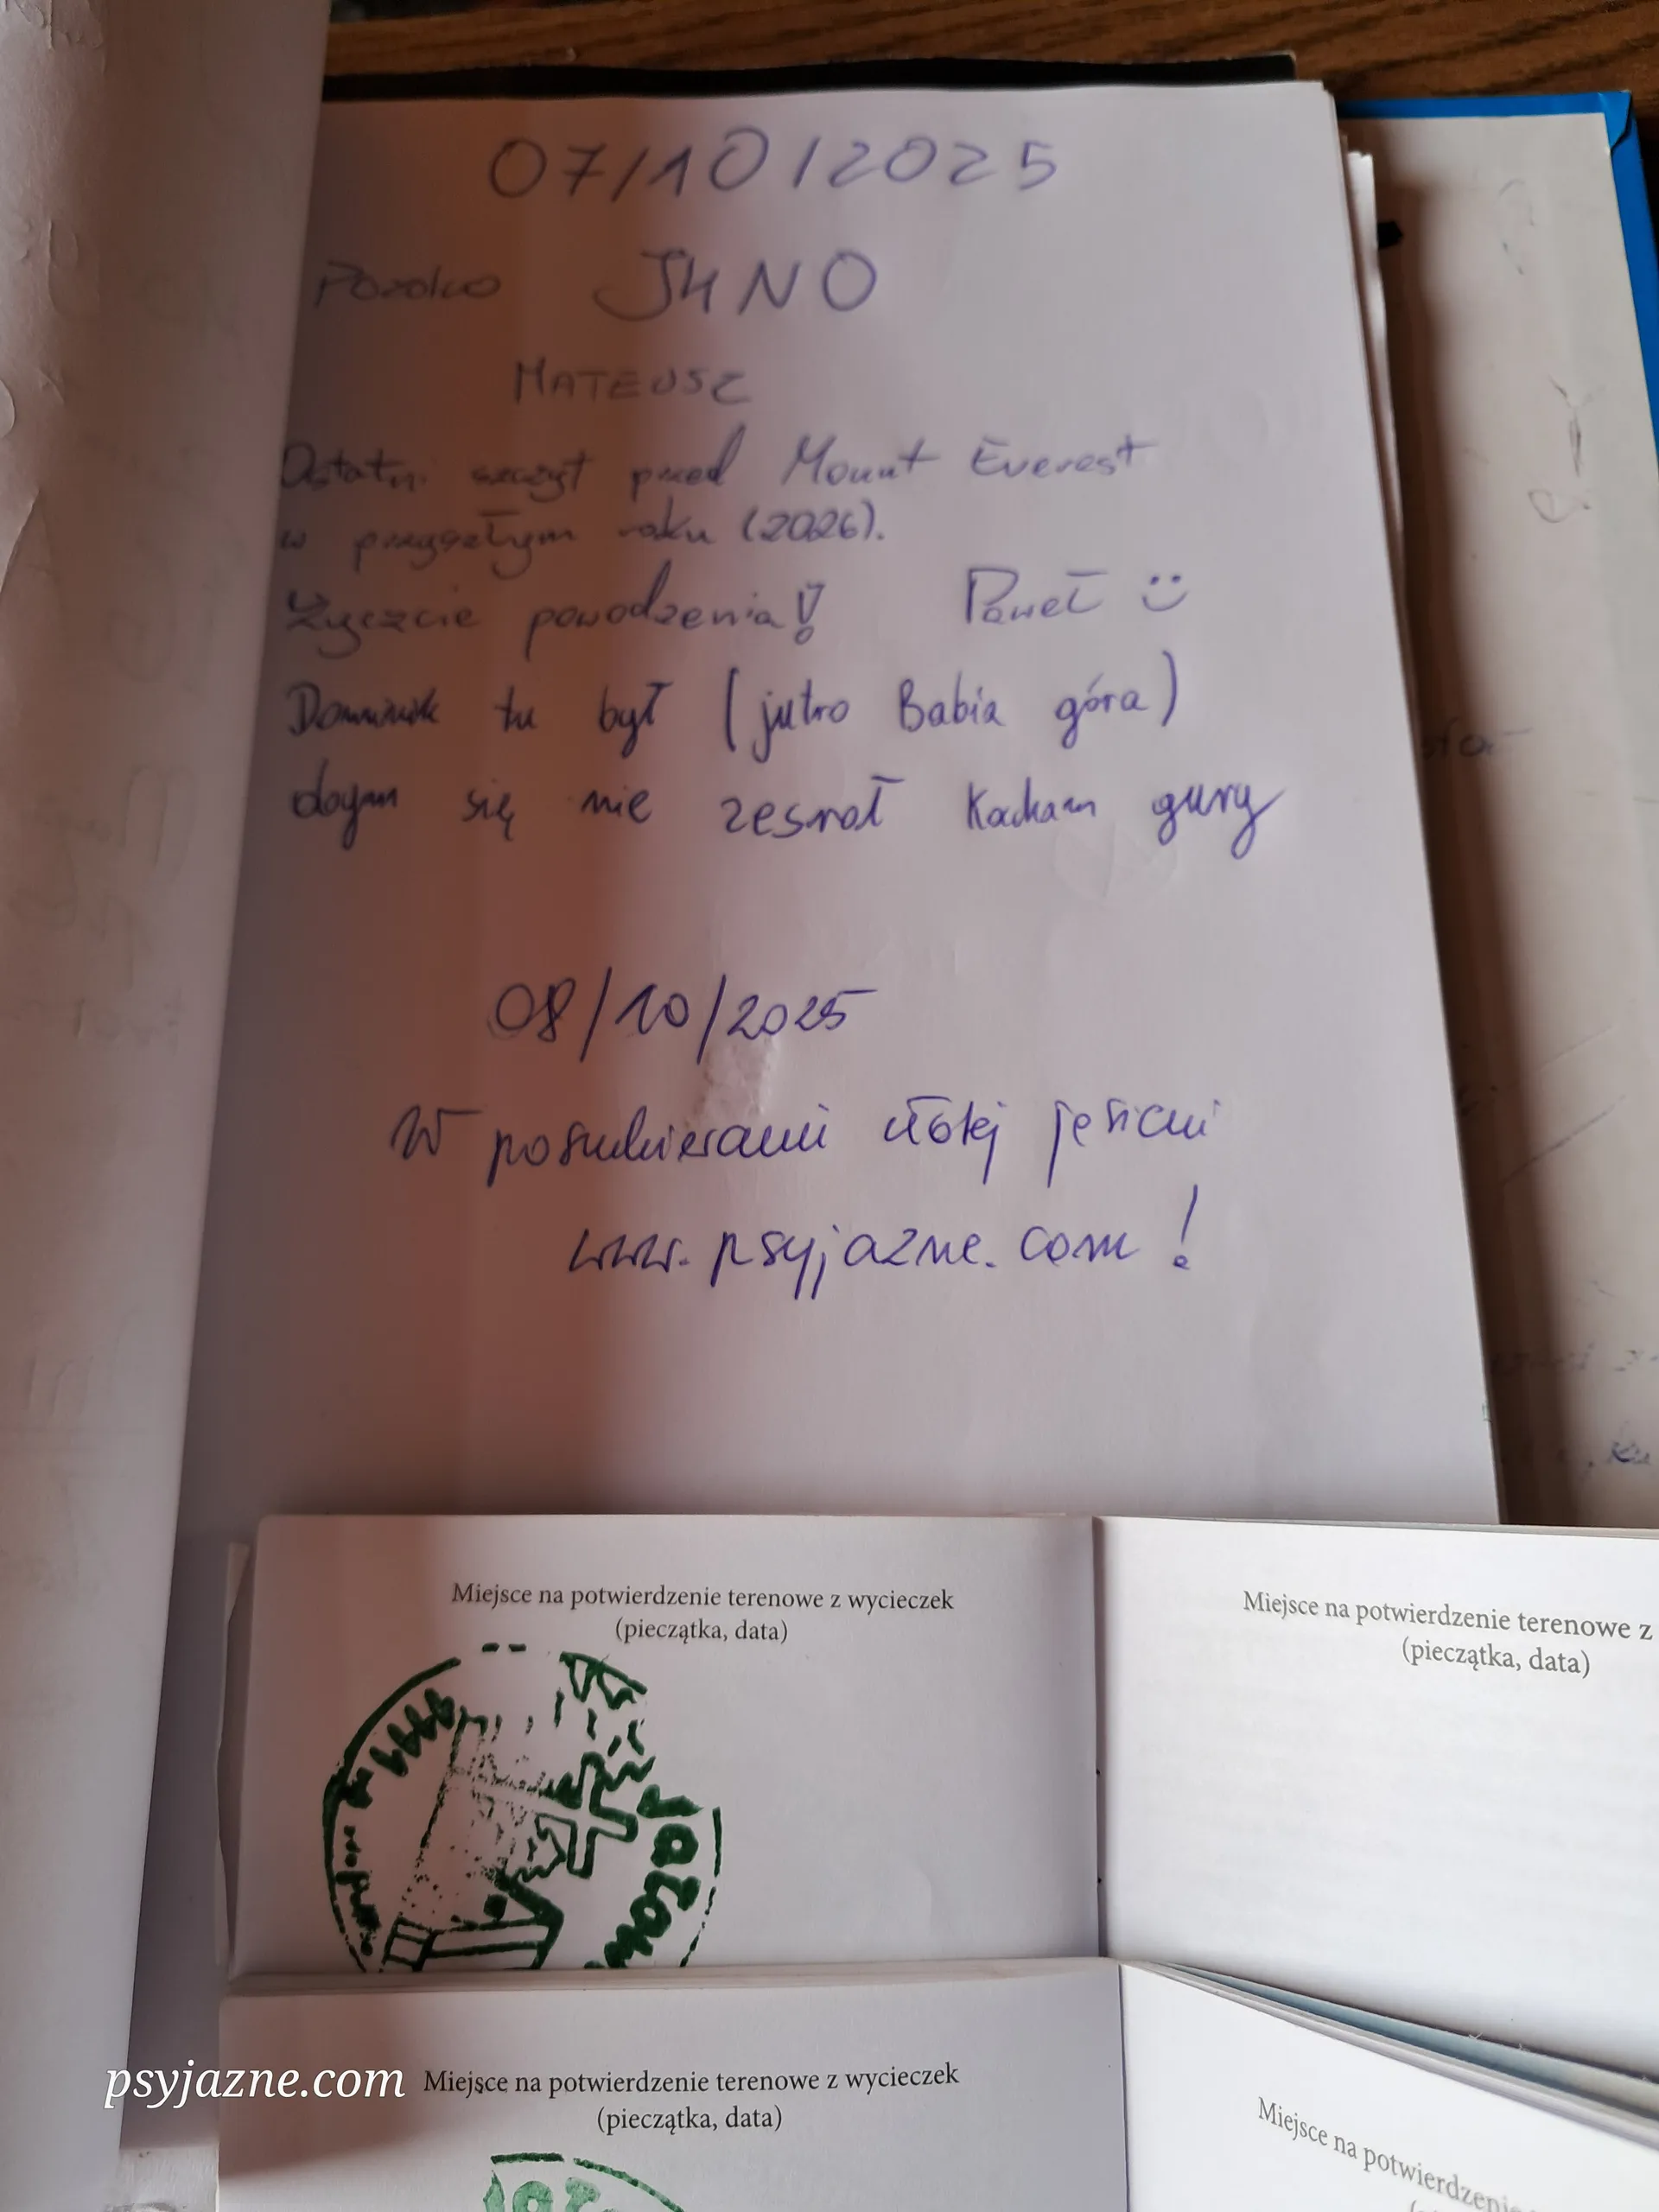 07/10/2025
JUNO
MATEUSZ
Ostatni szczyt przed Mount Everest
w przyszłym roku (2026).
Życzcie powodzenia! Paweł :)
Dominik tu był (jutro Babia góra)
się nie zesrał Kocham gury
08/10/2025
W poszukiwaniu złotej jesieni
www.psyjazne.com!
Miejsce na potwierdzenie terenowe z wycieczek
(pieczątka, data)
Miejsce na potwierdzenie terenowe z
(pieczątka, data)
1111 m npm
Jałow
psyjazne.com
Miejsce na potwierdzenie terenowe z wycieczek
(pieczątka, data)
Miejsce na potwierdzenie